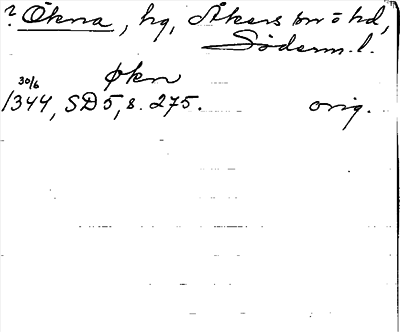 ? Ökna, hg, Åkers sn o hd,
Söderm. l.
økn
30/6
1344, SD 5, s. 275. orig.